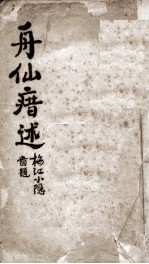 舟仙瘖述
梅江小隱
耑題